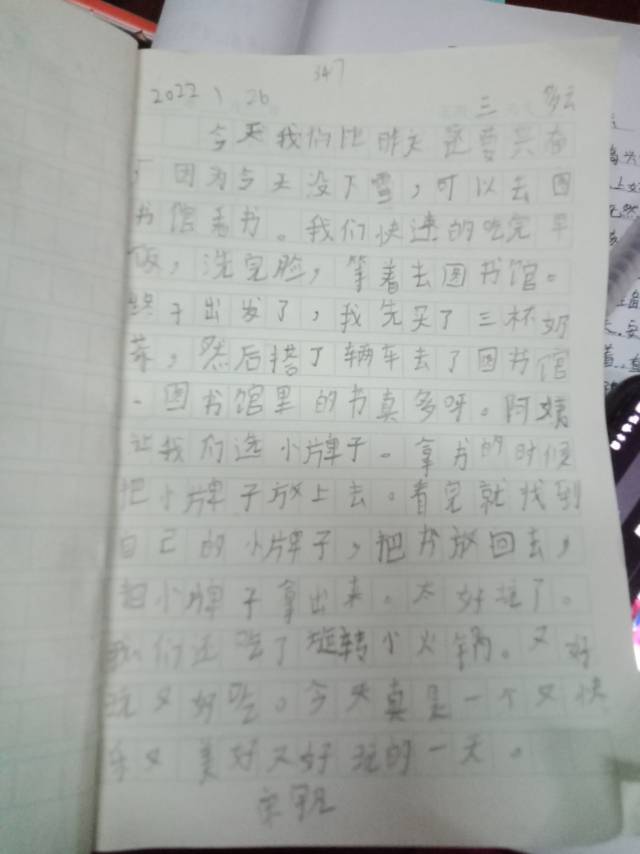 347
2022 1 26 三 多云
今天我们比昨天还要兴奋
了因为今天没下雪，可以去图
书馆看书。我们快速的吃完早
饭，洗完脸，等着去图书馆。
终于出发了，我先买了三杯奶
茶，然后搭了辆车去了图书馆
。图书馆里的书真多呀。阿姨
让我们选小牌子。拿书的时候
把小牌子放上去。看完就找到
自己的小牌子，把书放回去，
把小牌子拿出来。太好玩了。
我们还吃了旋转小火锅。又好
玩又好吃。今天真是一个又快
乐又美好又好玩的一天。